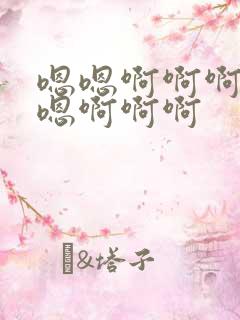 嗯嗯啊啊啊
嗯啊啊啊
&塔子